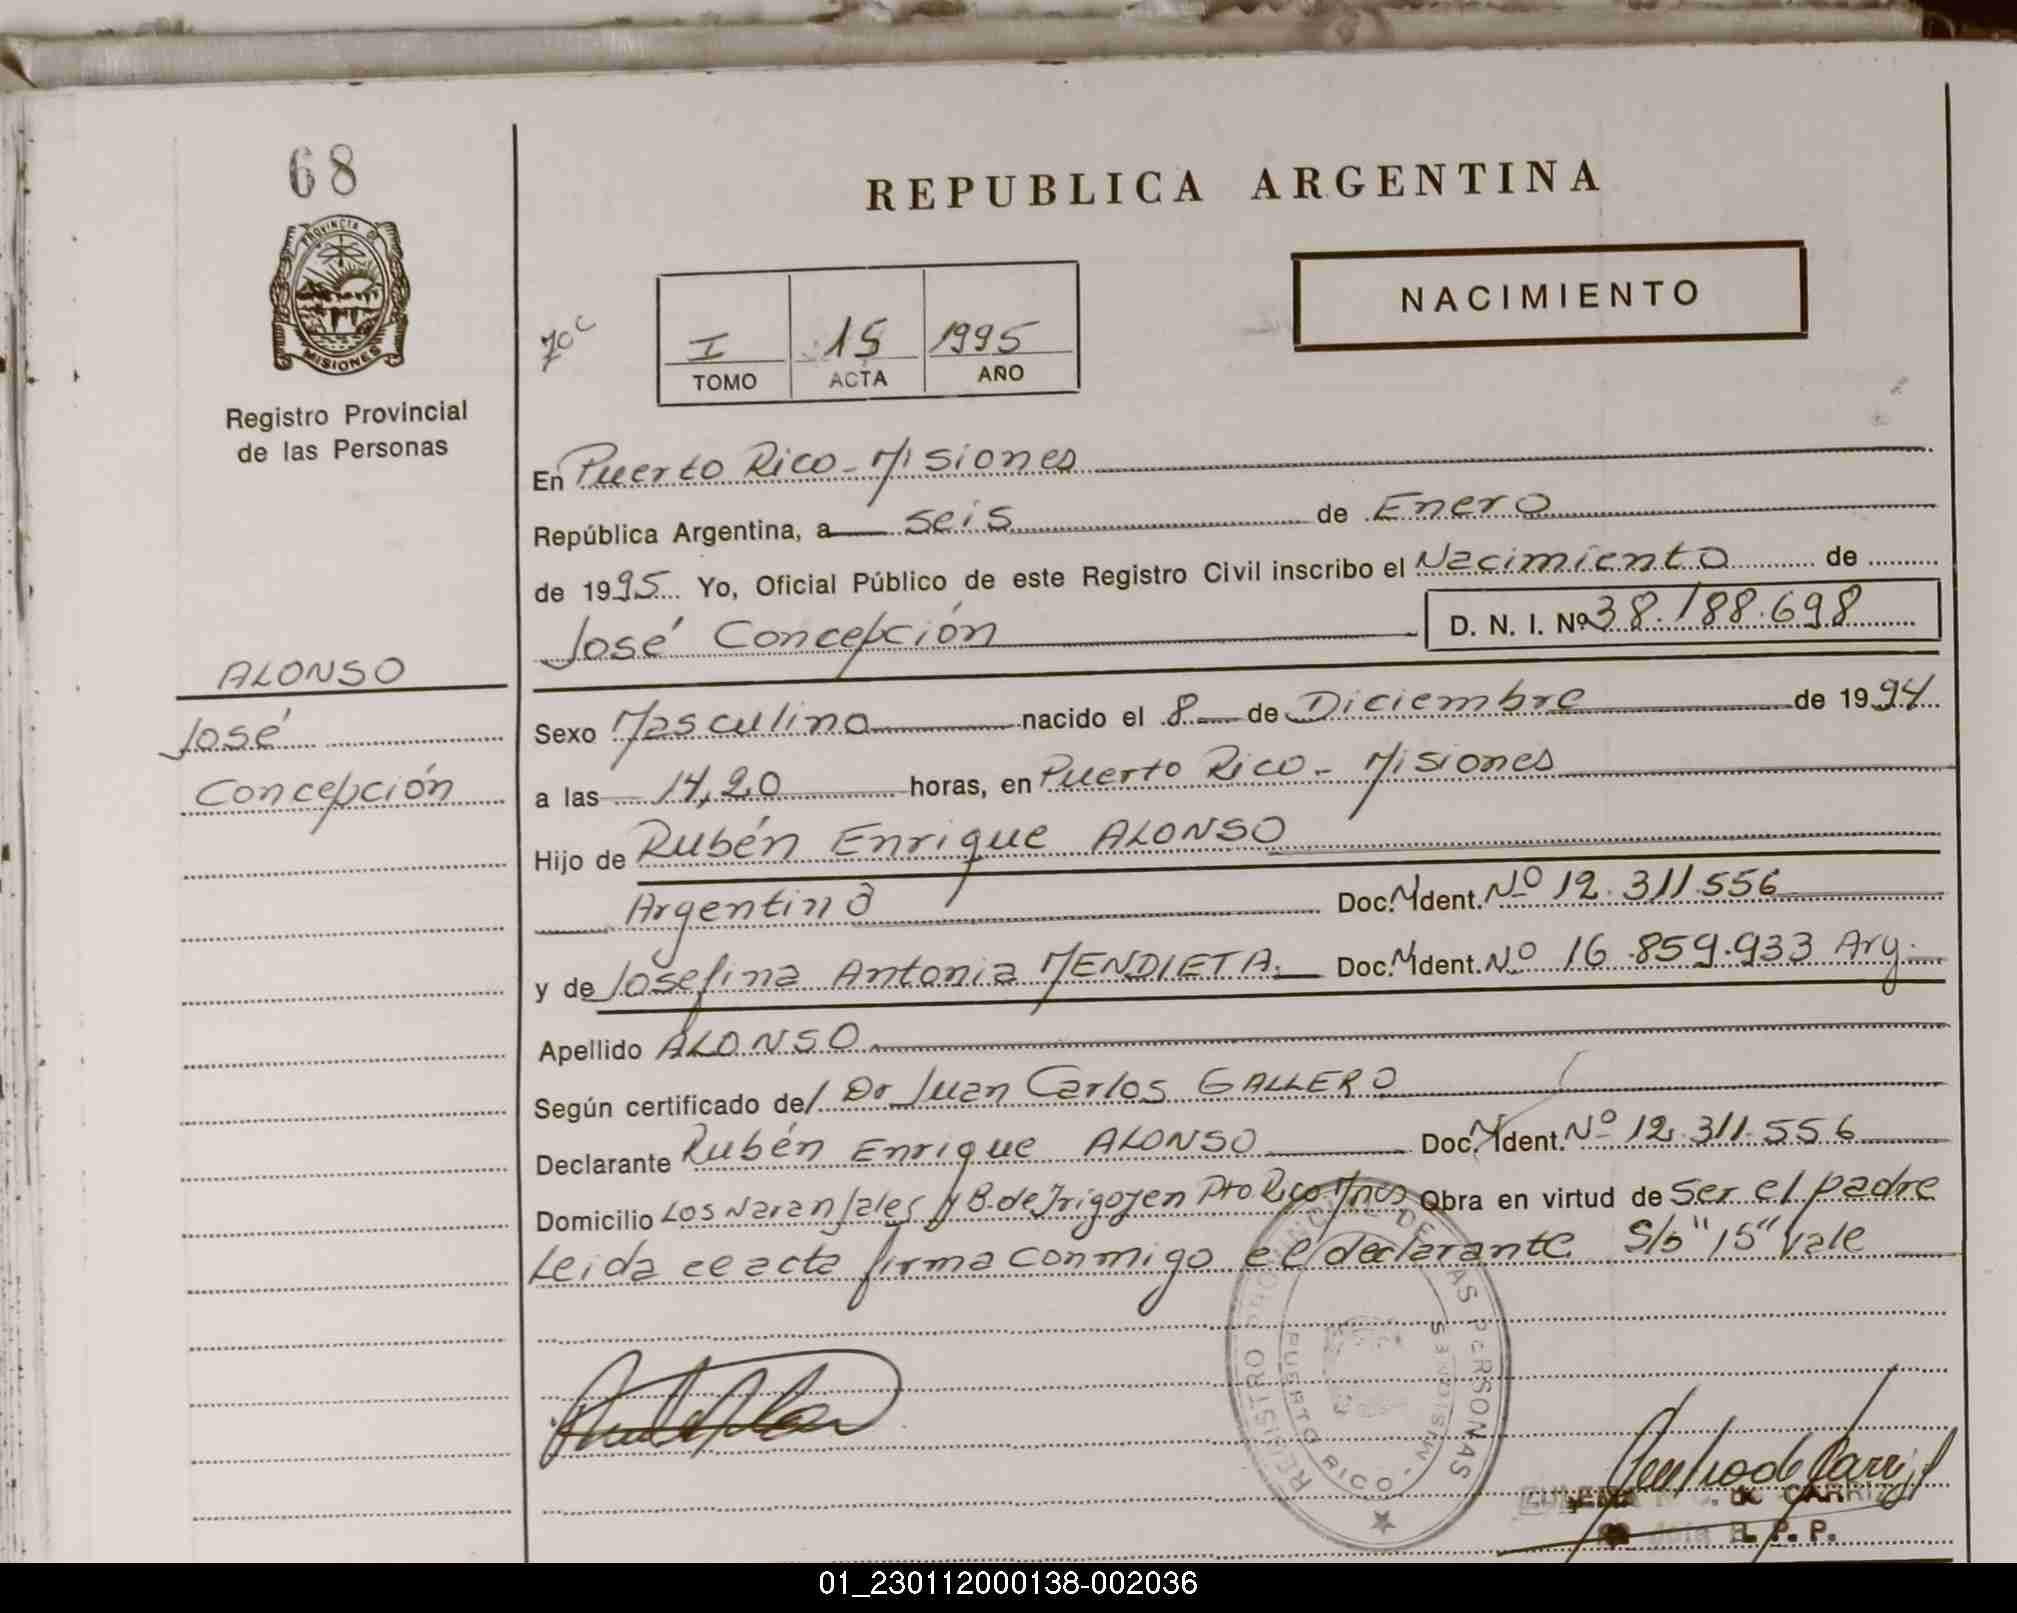 68
PROVINCIA DE
MISIONES
Registro Provincial
de las Personas
ALONSO
José
Concepción
REPUBLICA ARGENTINA
NACIMIENTO
I 15 1995
TOMO ACTA AÑO
En Puerto Rico - Misiones
República Argentina, a seis de Enero
de 1995 Yo, Oficial Público de este Registro Civil inscribo el Nacimiento de
José Concepción D. N. I. Nº 38.188.698
Sexo Masculino nacido el 8 de Diciembre de 1994
a las 14,20 horas, en Puerto Rico - Misiones
Hijo de Rubén Enrique ALONSO
Argentino Doc. N Ident. Nº 12.311.556
y de Josefina Antonia MENDIETA. Doc. N Ident. Nº 16.859.933 Arg.
Apellido ALONSO
Según certificado del Dr Juan Carlos GALLERO
Declarante Rubén Enrique ALONSO Doc. N Ident. Nº 12.311.556
Domicilio Los Naranjales y B. de Irigoyen Pto Rico Mnes Obra en virtud de ser el padre
Leida el acta firma conmigo el declarante S/b "15" Vale
REGISTRO PROVINCIAL DE LAS PERSONAS
PUERTO RICO - MISIONES
ZULEMA DE CARRI
R. P. P.
01_230112000138-002036